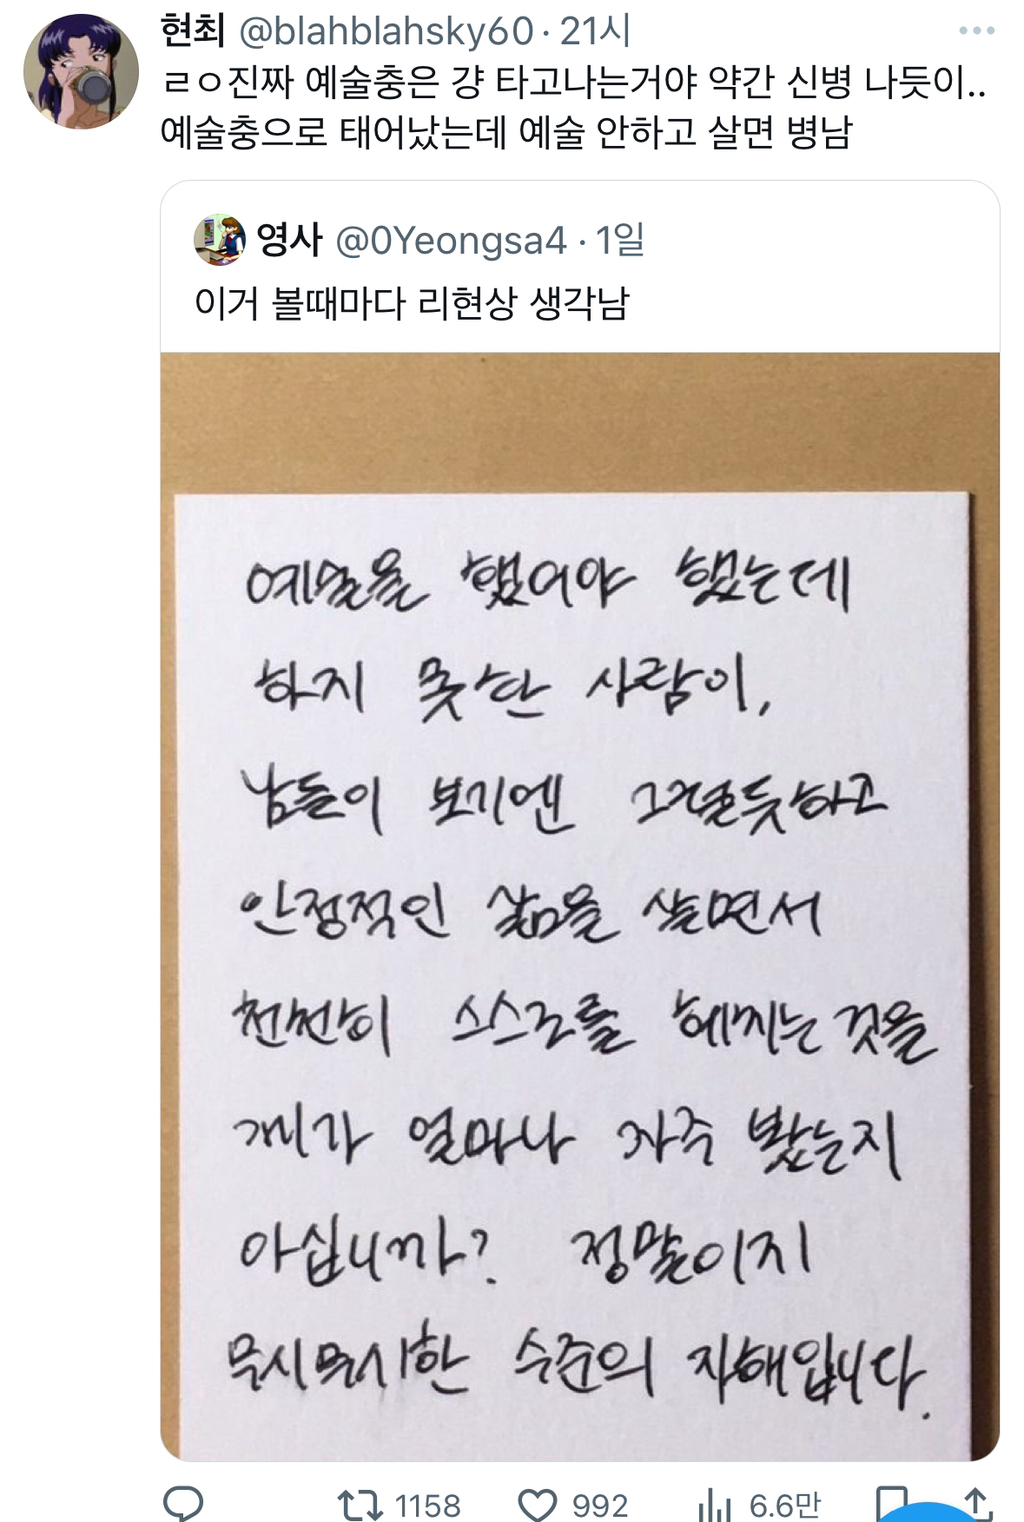 현최 @blahblahsky60 · 21시
ㄹㅇ진짜 예술충은 걍 타고나는거야 약간 신병 나듯이..
예술충으로 태어났는데 예술 안하고 살면 병남
영사 @0Yeongsa4 · 1일
이거 볼때마다 리현상 생각남
예술을 했어야 했는데
하지 못한 사람이,
남들이 보기엔 그럴듯하고
안정적인 삶을 살면서
천천히 스스로를 헤치는 것을
제가 얼마나 자주 봤는지
아십니까? 정말이지
무시무시한 수준의 자해입니다.
1158 992 6.6만